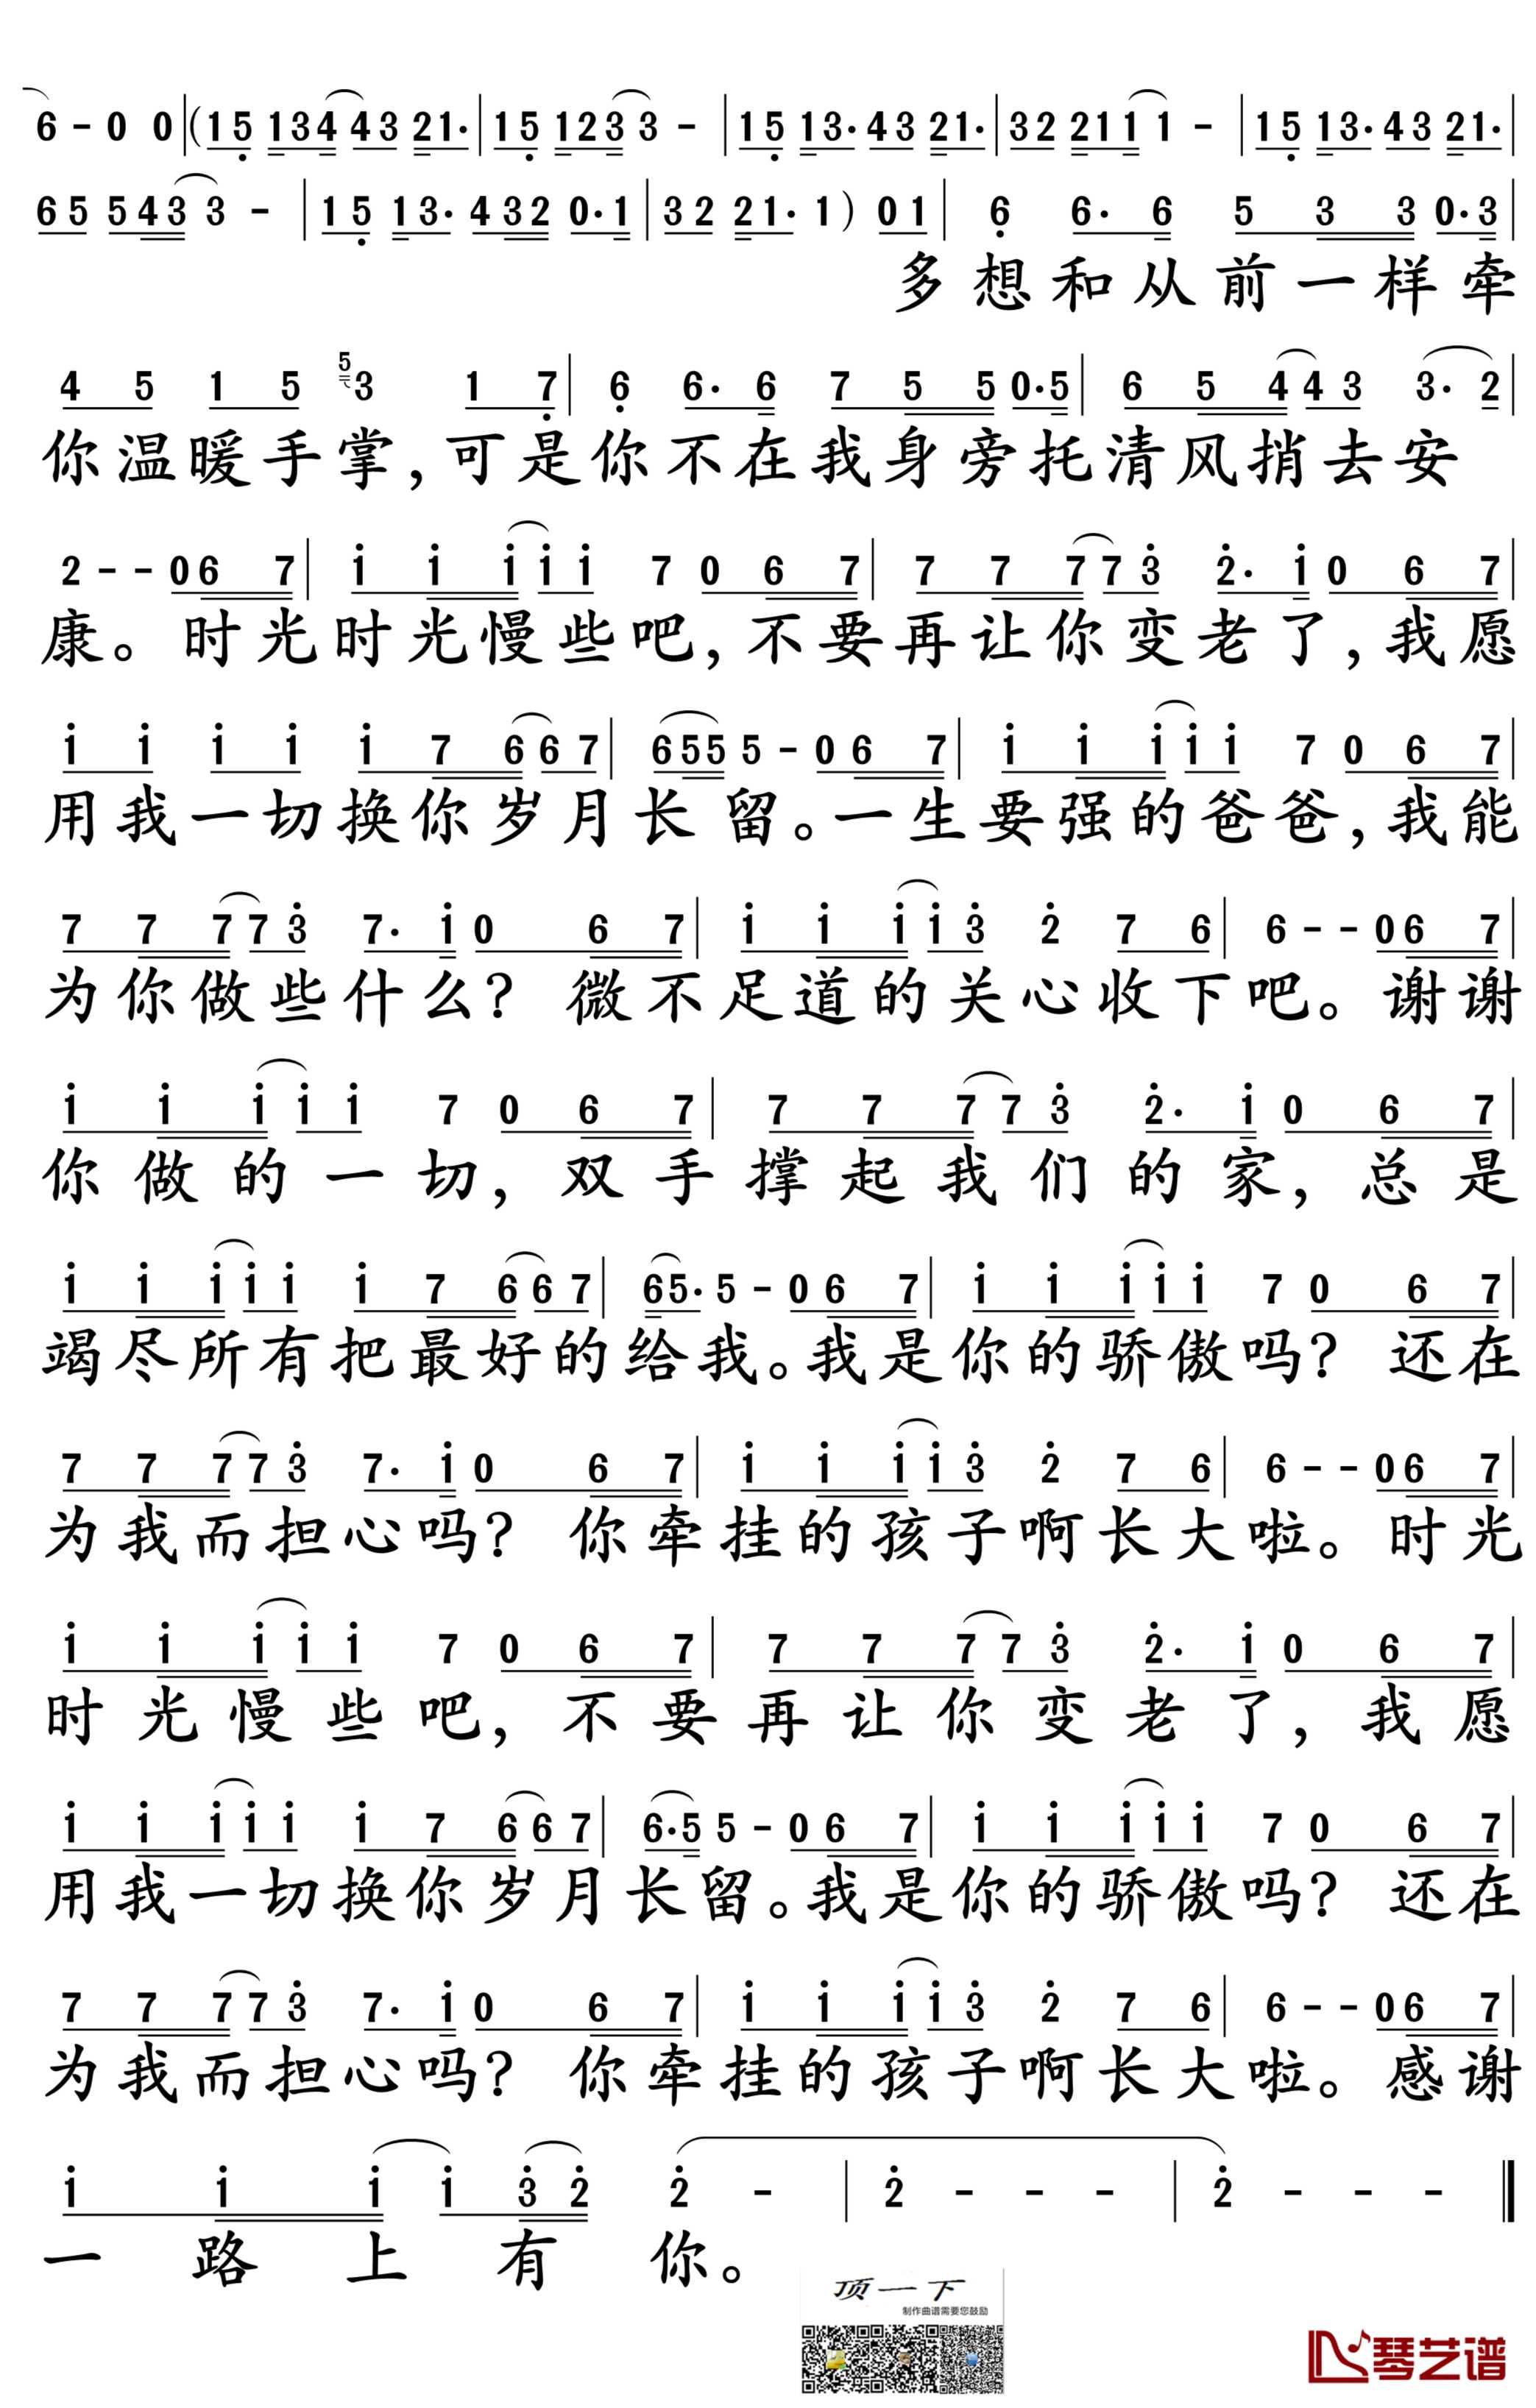 6 - 0 0 | ( 1 5 1 3 4 4 3 2 1· | 1 5 1 2 3 3 - | 1 5 1 3· 4 3 2 1· | 3 2 2 1 1 1 - | 1 5 1 3· 4 3 2 1· |
6 5 5 4 3 3 - | 1 5 1 3· 4 3 2 0· 1 | 3 2 2 1· 1 ) 0 1 | 6 6· 6 5 3 3 0· 3 |
多想和从前一样牵
4 5 1 5 5 3 1 7 | 6 6· 6 7 5 5 0· 5 | 6 5 4 4 3 3· 2 |
你温暖手掌,可是你不在我身旁托清风捎去安
2 - - 0 6 7 | i i i i i 7 0 6 7 | 7 7 7 7 3 2· i 0 6 7 |
康。时光时光慢些吧,不要再让你变老了,我愿
i i i i i 7 6 6 7 | 6 5 5 5 - 0 6 7 | i i i i i 7 0 6 7 |
用我一切换你岁月长留。一生要强的爸爸,我能
7 7 7 7 3 7· i 0 6 7 | i i i i 3 2 7 6 | 6 - - 0 6 7 |
为你做些什么? 微不足道的关心收下吧。谢谢
i i i i i 7 0 6 7 | 7 7 7 7 3 2· i 0 6 7 |
你做的一切,双手撑起我们的家,总是
i i i i i i 7 6 6 7 | 6 5· 5 - 0 6 7 | i i i i i 7 0 6 7 |
竭尽所有把最好的给我。我是你的骄傲吗? 还在
7 7 7 7 3 7· i 0 6 7 | i i i i 3 2 7 6 | 6 - - 0 6 7 |
为我而担心吗? 你牵挂的孩子啊长大啦。时光
i i i i i 7 0 6 7 | 7 7 7 7 3 2· i 0 6 7 |
时光慢些吧,不要再让你变老了,我愿
i i i i i i 7 6 6 7 | 6· 5 5 - 0 6 7 | i i i i i 7 0 6 7 |
用我一切换你岁月长留。我是你的骄傲吗? 还在
7 7 7 7 3 7· i 0 6 7 | i i i i 3 2 7 6 | 6 - - 0 6 7 |
为我而担心吗? 你牵挂的孩子啊长大啦。感谢
i i i i 3 2 2 - | 2 - - - | 2 - - - ‖
一路上有你。
顶一下
制作曲谱需要您鼓励
琴艺谱